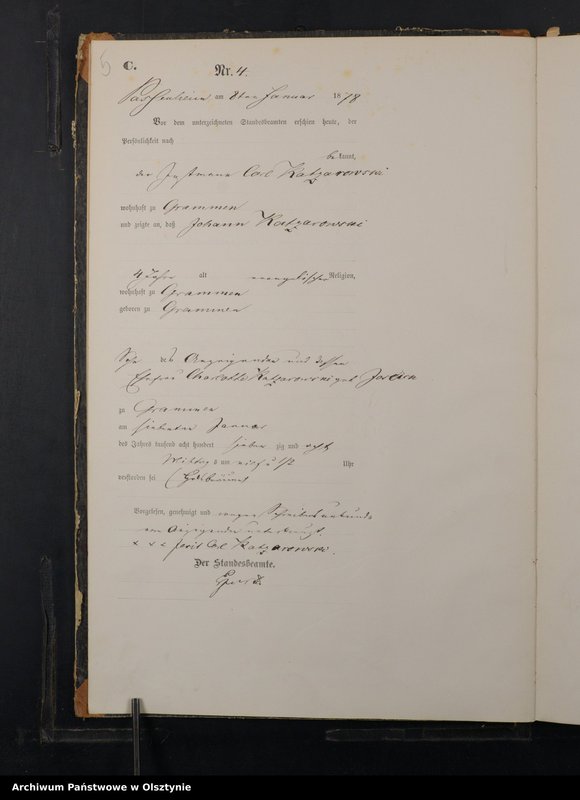 5
C.
Nr. 4.
Passenheim am 8ten Januar 1878
Vor dem unterzeichneten Standesbeamten erschien heute, der
Persönlichkeit nach
bekannt,
der Instmann Carl Katzarowski
wohnhaft zu Grammen
und zeigte an, daß Johann Katzarowski
4 Jahre alt evangelischer Religion,
wohnhaft zu Grammen
geboren zu Grammen
Sohn des Anzeigenden und dessen
Ehefrau Charlotte Katzarowski geb
zu Grammen
am siebenten Januar
des Jahres tausend acht hundert sieben zig und acht
Mittags um 1/2 Uhr
verstorben sei
Vorgelesen, genehmigt und wegen Schreibensunkunde
vom Anzeigenden unterkreuzt
x x x Carl Katzarowski.
Der Standesbeamte.
Archiwum Państwowe w Olsztynie